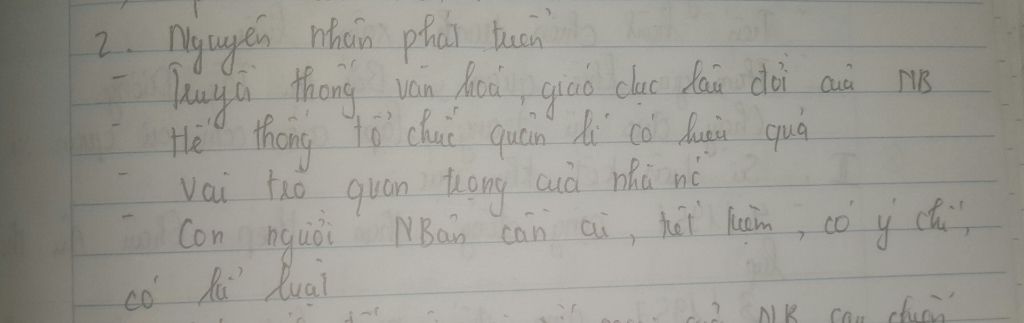 2. Nguyên nhân phát triển
- Truyền thống văn hoá, giáo dục lâu đời của NB
- Hệ thống tổ chức quản lí có hiệu quả
- Vai trò quan trọng của nhà nc
- Con người NBản cần cù, tiết kiệm, có ý chí,
có kỉ luật
NB